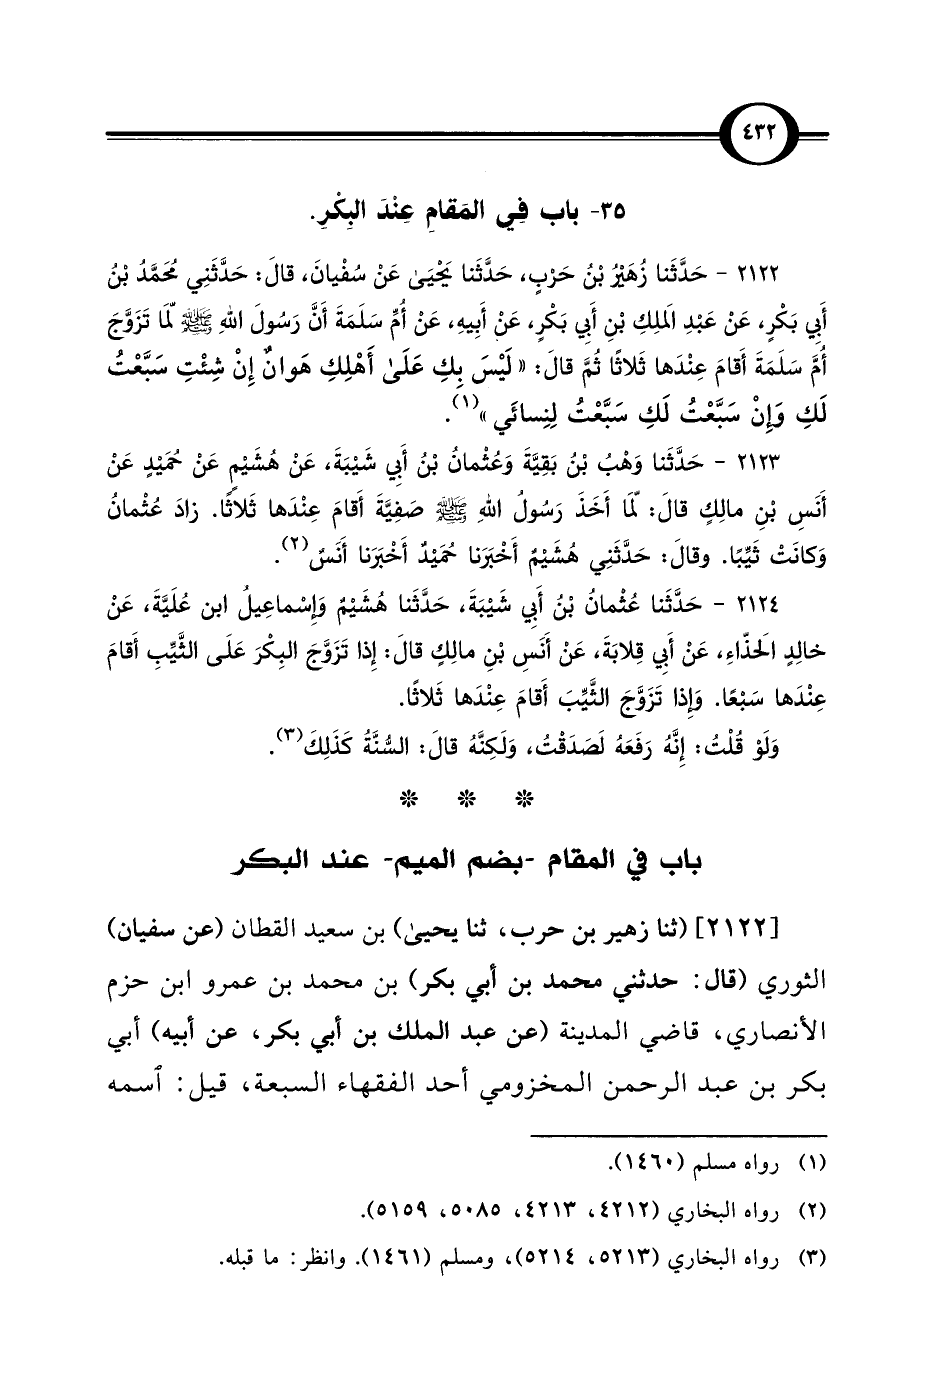 ٤٣٢
٣٥- باب فِي المَقامِ عِنْدَ البِكْرِ.
٢١٢٢ - حَدَّثَنا زُهَيْرُ بْنُ حَرْبٍ، حَدَّثَنا يَحْيَىٰ عَنْ سُفْيانَ، قالَ: حَدَّثَنِي مُحَمَّدُ بْنُ
أَبِي بَكْرٍ، عَنْ عَبْدِ المَلِكِ بْنِ أَبِي بَكْرٍ، عَنْ أَبِيهِ، عَنْ أُمِّ سَلَمَةَ أَنَّ رَسُولَ اللهِ ﷺ لَمّا تَزَوَّجَ
أُمَّ سَلَمَةَ أَقامَ عِنْدَها ثَلاثًا ثُمَّ قالَ: « لَيْسَ بِكِ عَلَىٰ أَهْلِكِ هَوانٌ إِنْ شِئْتِ سَبَّعْتُ
لَكِ وَإِنْ سَبَّعْتُ لَكِ سَبَّعْتُ لِنِسائَي »(١).
٢١٢٣ - حَدَّثَنا وَهْبُ بْنُ بَقِيَّةَ وَعُثْمانُ بْنُ أَبِي شَيْبَةَ، عَنْ هُشَيْمٍ عَنْ حُمَيْدٍ عَنْ
أَنَسِ بْنِ مالِكٍ قالَ: لَمّا أَخَذَ رَسُولُ اللهِ ﷺ صَفِيَّةَ أَقامَ عِنْدَها ثَلاثًا. زادَ عُثْمانُ
وَكانَتْ ثَيِّبًا. وقالَ: حَدَّثَنِي هُشَيْمٌ أَخْبَرَنا حُمَيْدٌ أَخْبَرَنا أَنَسٌ(٢).
٢١٢٤ - حَدَّثَنا عُثْمانُ بْنُ أَبِي شَيْبَةَ، حَدَّثَنا هُشَيْمٌ وَإِسْماعِيلُ ابن عُلَيَّةَ، عَنْ
خالِدٍ الَحَذّاءِ، عَنْ أَبِي قِلابَةَ، عَنْ أَنَسِ بْنِ مالِكٍ قالَ: إِذا تَزَوَّجَ البِكْرَ عَلَى الثَّيِّبِ أَقامَ
عِنْدَها سَبْعًا. وَإِذا تَزَوَّجَ الثَّيِّبَ أَقامَ عِنْدَها ثَلاثًا.
وَلَوْ قُلْتُ: إِنَّهُ رَفَعَهُ لَصَدَقْتُ، وَلَكِنَّهُ قالَ: السُّنَّةُ كَذَلِكَ(٣).
❊ ❊ ❊
باب في المقام -بضم الميم- عند البكر
[٢١٢٢] (ثنا زهير بن حرب، ثنا يحيىٰ) بن سعيد القطان (عن سفيان)
الثوري (قال: حدثني محمد بن أبي بكر) بن محمد بن عمرو ابن حزم
الأنصاري، قاضي المدينة (عن عبد الملك بن أبي بكر، عن أبيه) أبي
بكر بن عبد الرحمن المخزومي أحد الفقهاء السبعة، قيل: ٱسمه
(١) رواه مسلم (١٤٦٠).
(٢) رواه البخاري (٤٢١٢، ٤٢١٣، ٥٠٨٥، ٥١٥٩).
(٣) رواه البخاري (٥٢١٣، ٥٢١٤)، ومسلم (١٤٦١). وانظر: ما قبله.